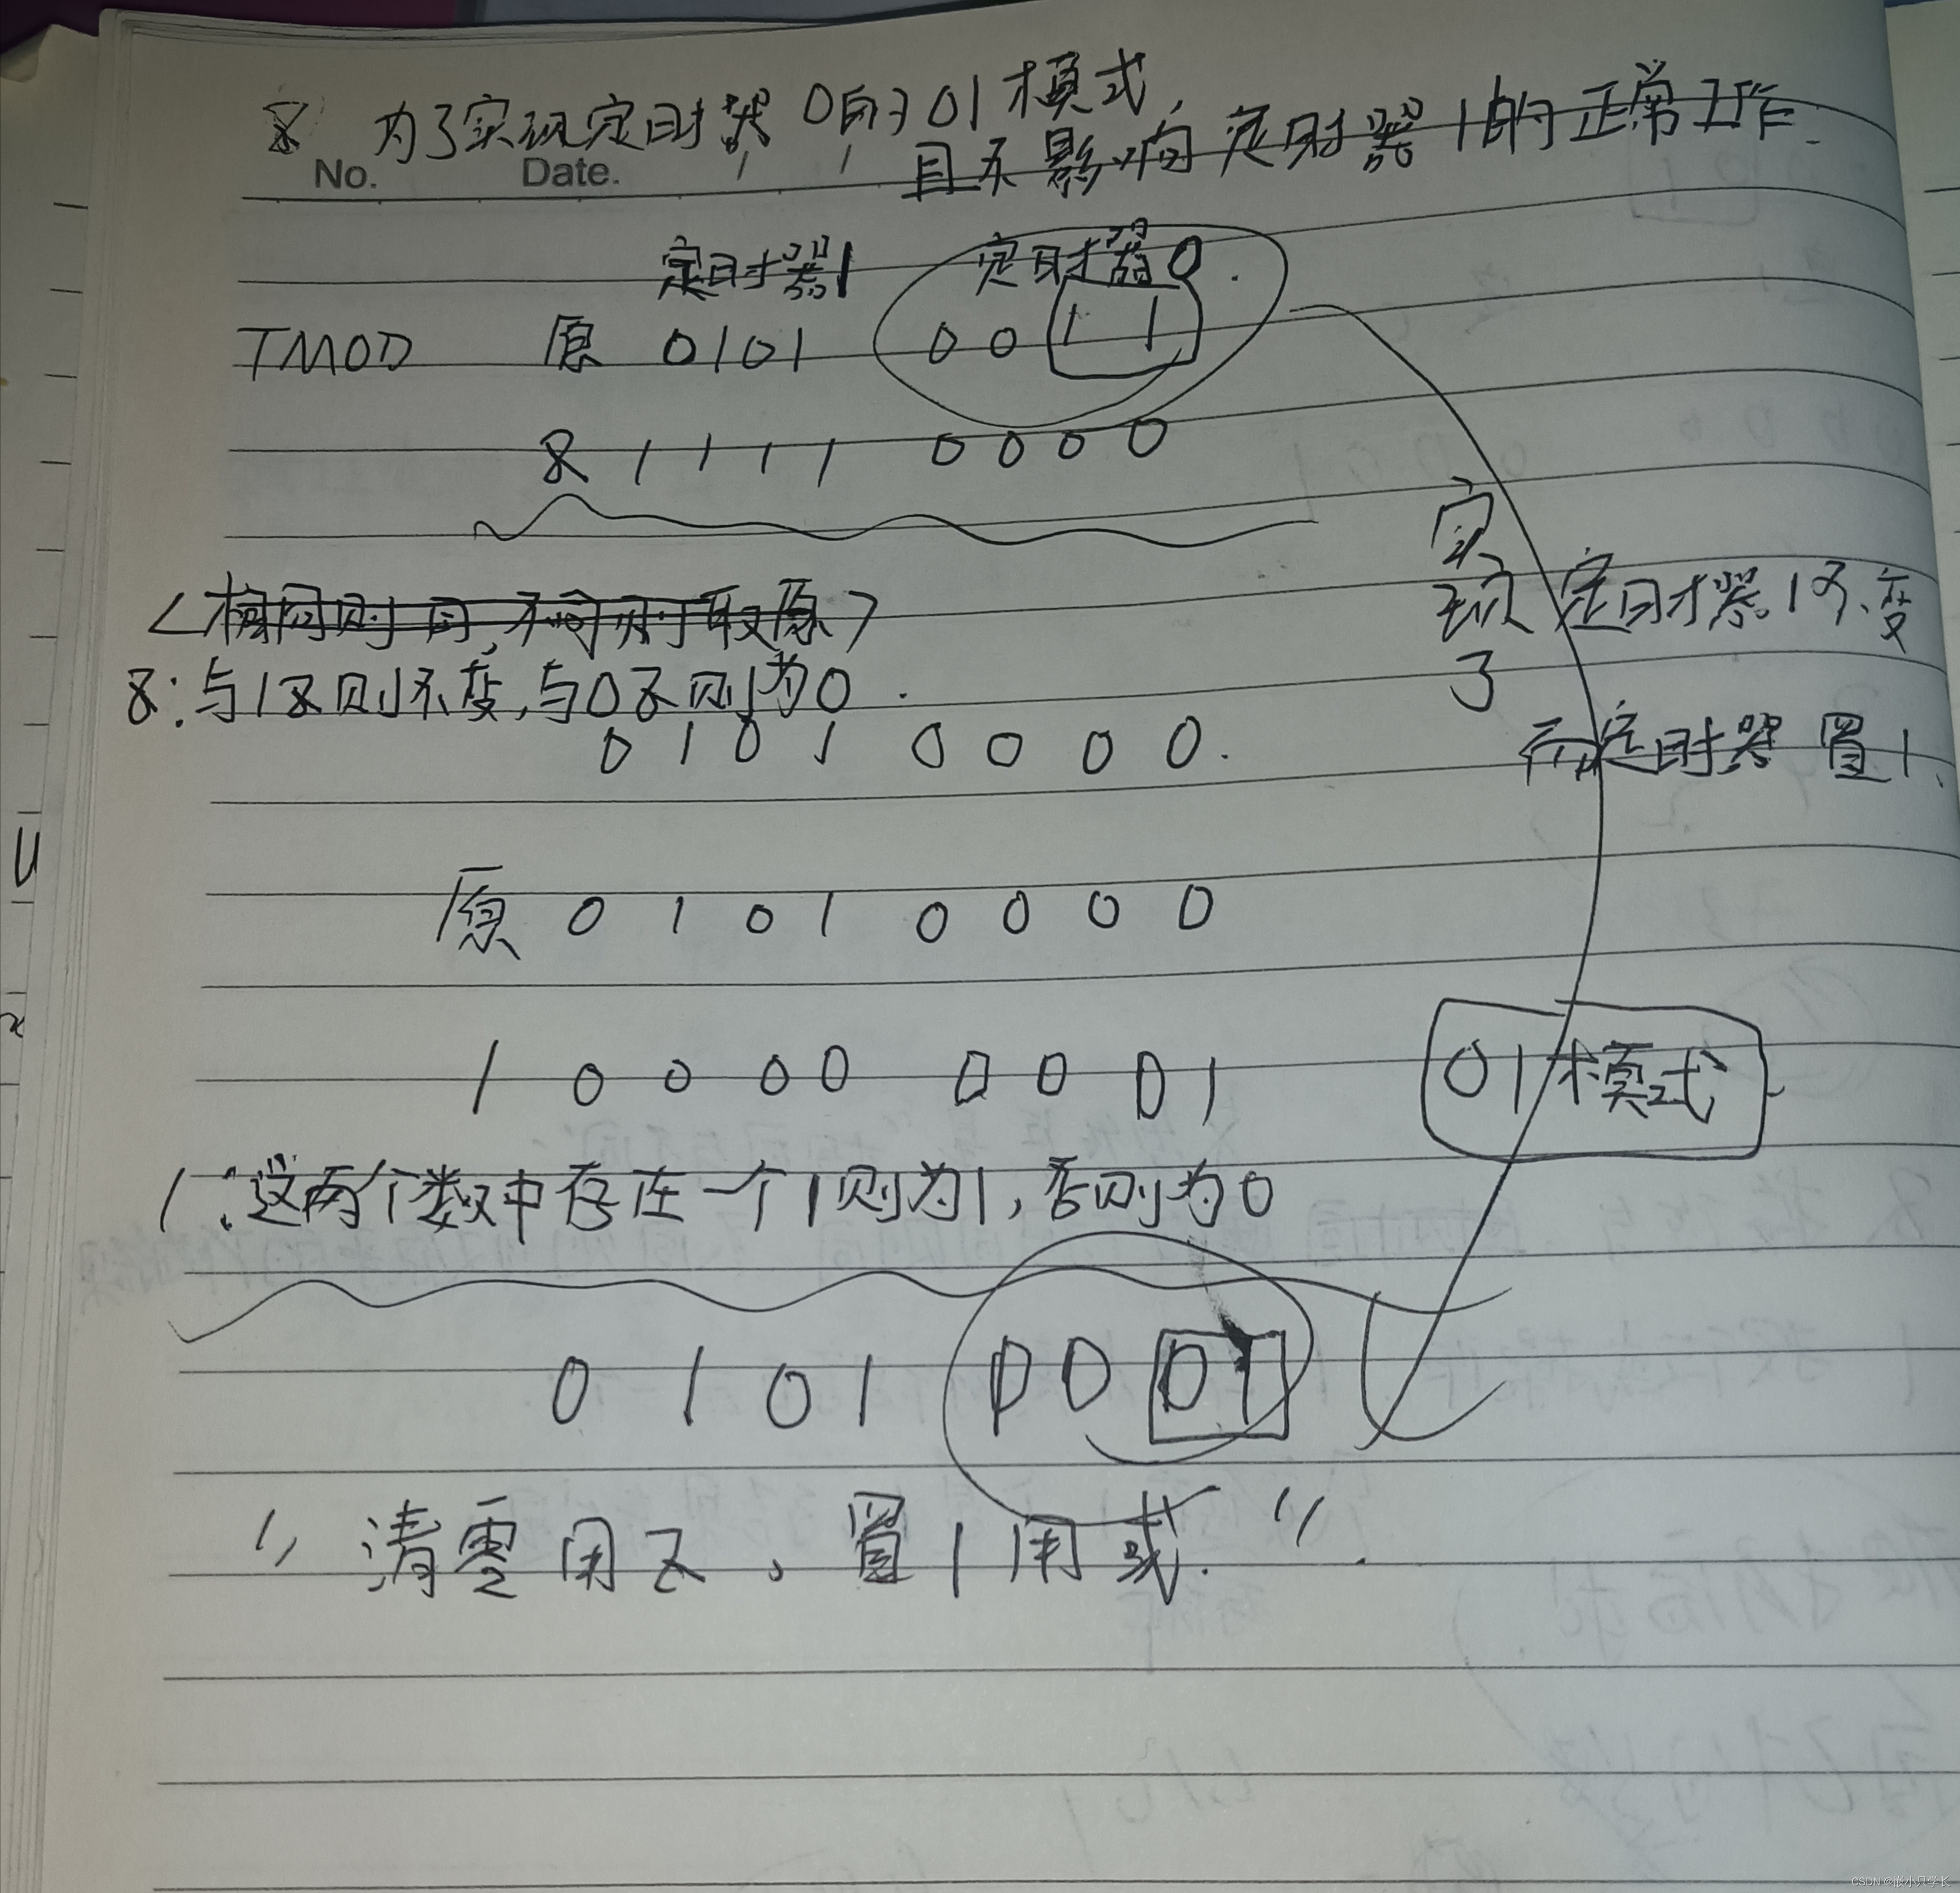 & 为了实现定时器0的01模式,
且不影响定时器1的正常工作.
No. Date.
定时器1 定时器0.
TMOD 原 0101 0011
& 1111 0000
<相同则同,不同则取原>
&:与1&则不变,与0&则为0.
0101 0000.
实现了 定时器1不变
而定时器 置1.
原 0101 0000
| 0000 0001
01模式
|:这两个数中存在一个1则为1,否则为0
0101 0001
"清零用&,置1用或."
CSDN @嵌小只学长